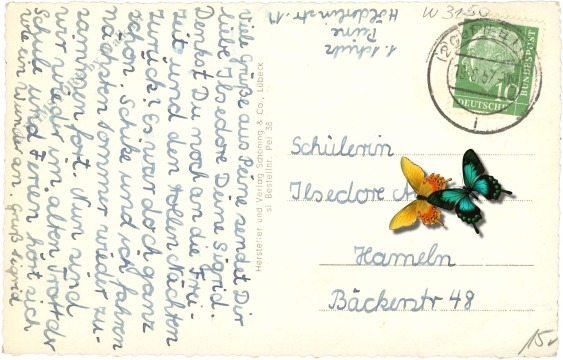 Viele Grüße aus Peine sendet Dir
liebe Ilsedore Deine Sigrid.
Denkst Du noch an die Frei-
zeit und den tollen Nächten
zurück? Es war doch ganz
schön. Schike und ich fahren
nächsten Sommer wieder zu-
sammen fort. Nun sind
wir wieder im alten Trott der
Schule und Ferien hört sich
wie ein Wunder an. Gruß Sigrid
Hersteller und Verlag Schöning & Co., Lübeck
si Bestellnr. Pei 38
Peine
Hölderlinstr. 17
W 3150
10
DEUTSCHE
BUNDESPOST
Schülerin
Ilsedore
Hameln
Bäckerstr 48
15,-